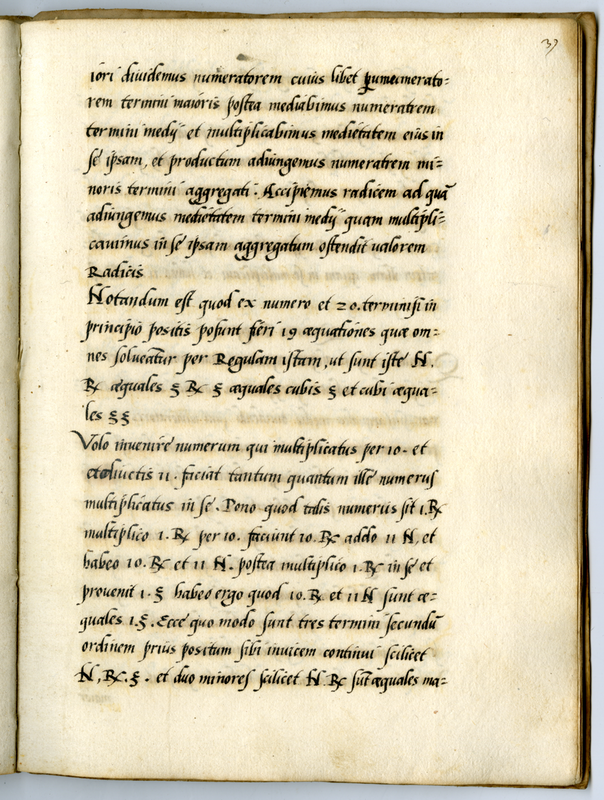 39
iori diuidemus numeratorem cuius libet numerato=
rem termini maioris postea mediabimus numeratrem
termini medij et multiplicabimus medietatem eius in
se ipsam, et productum adiungemus numeratrem mi=
noris termini aggregati. Accipiemus radicem ad quã
adiungemus medietatem termini medij quam multipli=
cauimus in se ipsam aggregatum ostendit valorem
Radicis
Notandum est quod ex numero et 20. terminis in
principio positis possunt fieri 19 æquationes quæ om=
nes solueatur per Regulam istam, ut sunt iste N.
℞ æquales § ℞ § æquales cubis § et cubi æqua=
les § §
Volo inuenire numerum qui multiplicatus per 10. et
11. faciat tantum quantum ille numerus
multiplicatus in se. Pono quod talis numerus sit 1. ℞
multiplico 1. ℞ per 10. faciunt 10. ℞ addo 11 N, et
habeo 10. ℞ et 11 N. postea multiplico 1. ℞ in se et
prouenit 1. § habeo ergo quod 10. ℞ et 11 N sunt æ=
quales 1. §. Ecce quo modo sunt tres termini secundũ
ordinem prius positum sibi inuicem continui scilicet
N, ℞. §. et duo minores scilicet N. ℞ sũt æquales ma=